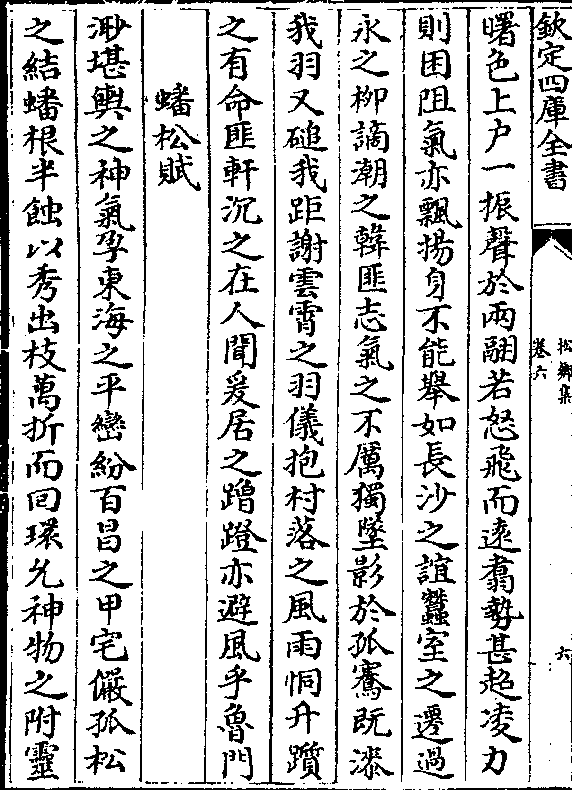 欽定四庫全書
松鄉集
卷六
六
曙色上户一振聲於兩翮若怒飛而遠翥勢甚超凌力
則困阻氣亦飄揚身不能舉如長沙之誼蠶室之遷過
永之柳謫潮之韓匪志氣之不厲獨墜影於孤騫既漆
我羽又磓我距謝雲霄之羽儀抱村落之風雨恫升躓
之有命匪軒沉之在人聞爰居之蹭蹬亦避風乎魯門
蟠松賦
渺堪輿之神氣孕東海之平巒紛百昌之甲宅儼孤松
之結蟠根半蝕以秀出枝萬折而回環允神物之附靈